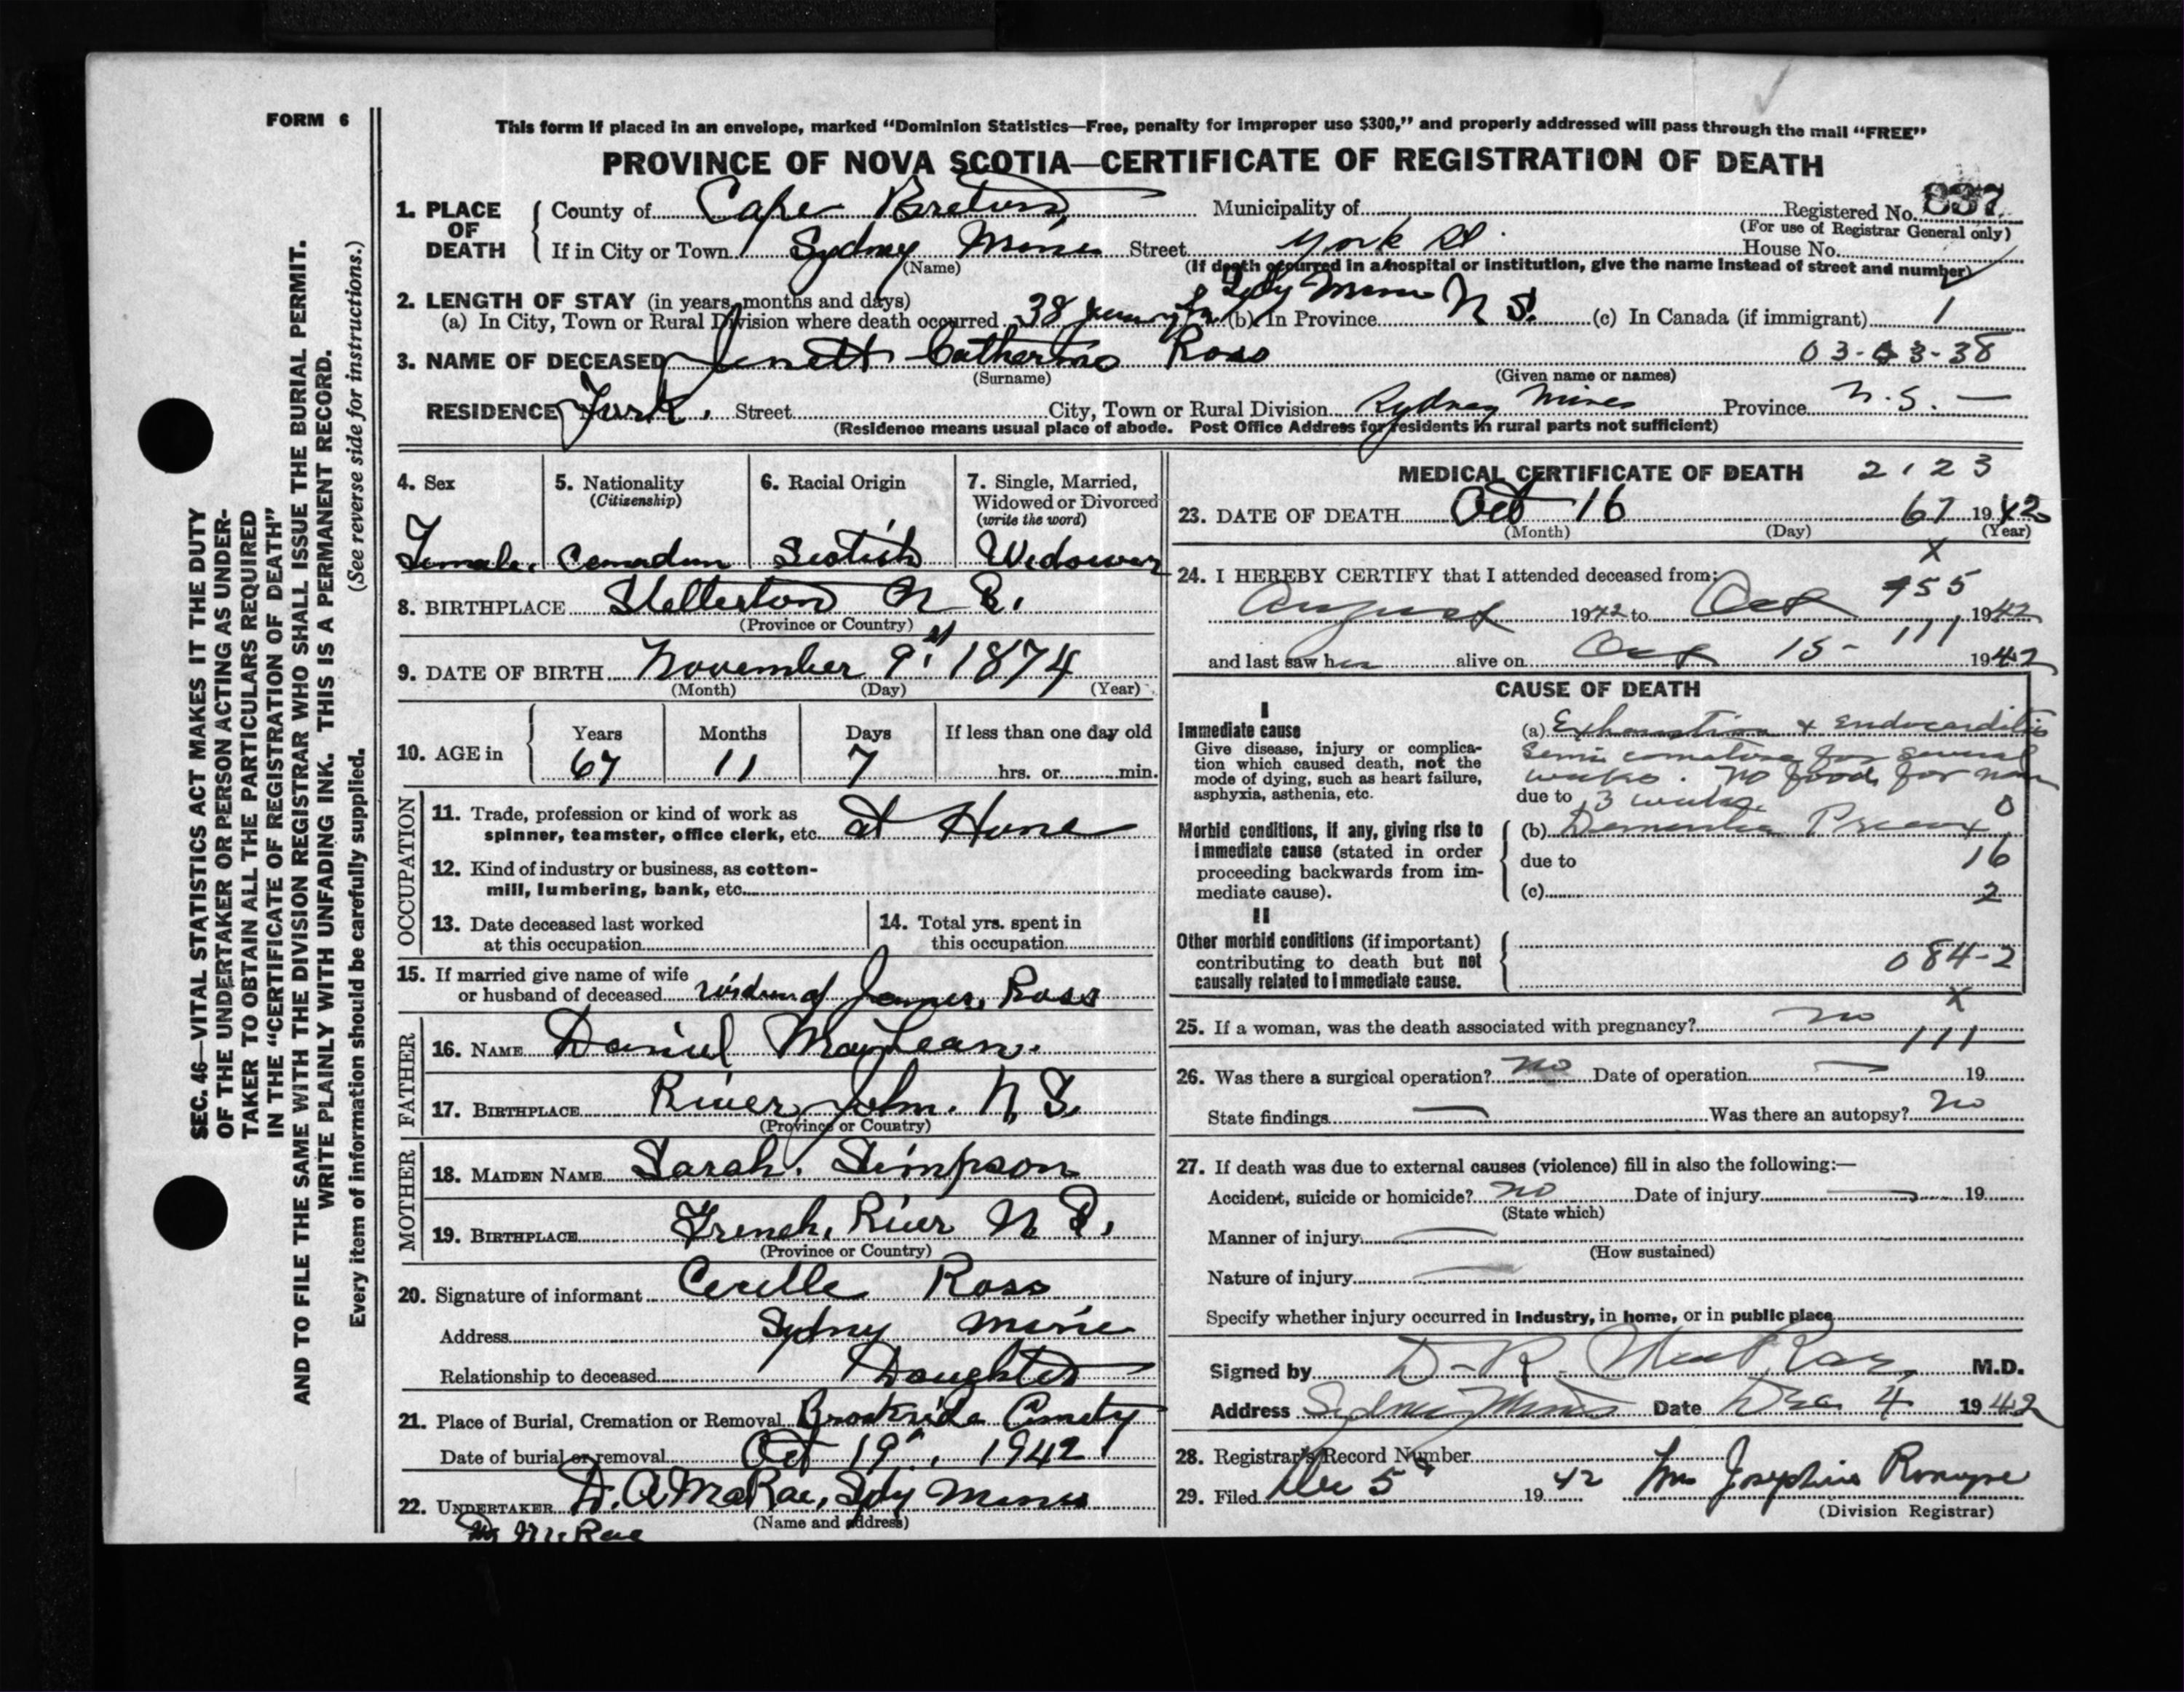 FORM 6
This form if placed in an envelope, marked “Dominion Statistics—Free, penalty for improper use $300,” and properly addressed will pass through the mail “FREE”
PROVINCE OF NOVA SCOTIA—CERTIFICATE OF REGISTRATION OF DEATH
1. PLACE OF DEATH County of Cape Breton Municipality of Registered No. 837
(For use of Registrar General only)
If in City or Town Sydney Mines Street York St. House No.
(Name) (If death occurred in a hospital or institution, give the name instead of street and number)
2. LENGTH OF STAY (in years, months and days) Sydy Mines
(a) In City, Town or Rural Division where death occurred 38 (b) In Province N S. (c) In Canada (if immigrant) 1
3. NAME OF DECEASED Jenett Catherine Ross 03-03-38
(Surname) (Given name or names)
RESIDENCE York. Street City, Town or Rural Division Sydney Mines Province N.S. —
(Residence means usual place of abode. Post Office Address for residents in rural parts not sufficient)
4. Sex Female.
5. Nationality (Citizenship) Canadian
6. Racial Origin Scotish
7. Single, Married, Widowed or Divorced (write the word) Widower
8. BIRTHPLACE Stellerton N S.
(Province or Country)
9. DATE OF BIRTH November 9 1874
(Month) (Day) (Year)
10. AGE in Years 67 Months 11 Days 7 If less than one day old hrs. or min.
OCCUPATION
11. Trade, profession or kind of work as
spinner, teamster, office clerk, etc. at Home
12. Kind of industry or business, as cotton-
mill, lumbering, bank, etc.
13. Date deceased last worked
at this occupation
14. Total yrs. spent in
this occupation
15. If married give name of wife
or husband of deceased widow of James Ross
FATHER
16. NAME Daniel MacLean.
17. BIRTHPLACE River John. N S.
(Province or Country)
MOTHER
18. MAIDEN NAME Sarah. Simpson
19. BIRTHPLACE French River N S.
(Province or Country)
20. Signature of informant Ross
Address Sydney Mine
Relationship to deceased Daughter
21. Place of Burial, Cremation or Removal Brookside Cemety
Date of burial or removal Oct 19, 1942
22. UNDERTAKER D. A. McRae, Sydy Mines
(Name and address)
McRae
MEDICAL CERTIFICATE OF DEATH 2123
23. DATE OF DEATH Oct 16 67 1942
(Month) (Day) (Year)
X
24. I HEREBY CERTIFY that I attended deceased from:
955
August 1942 to Oct 1942
111
and last saw her alive on Oct 15- 1942
CAUSE OF DEATH
I
Immediate cause
Give disease, injury or complica-
tion which caused death, not the
mode of dying, such as heart failure,
asphyxia, asthenia, etc.
(a) Exhaustion + endocarditis
Semi comatose for several
weeks. No food for
due to 3 weeks 0
Morbid conditions, if any, giving rise to
immediate cause (stated in order
proceeding backwards from im-
mediate cause).
(b) Dementia Precox
due to 16
(c) 2
II
Other morbid conditions (if important)
contributing to death but not
causally related to immediate cause.
084-2
X
25. If a woman, was the death associated with pregnancy? no
111
26. Was there a surgical operation? No Date of operation — 19
State findings — Was there an autopsy? No
27. If death was due to external causes (violence) fill in also the following:—
Accident, suicide or homicide? No Date of injury — 19
(State which)
Manner of injury —
(How sustained)
Nature of injury —
Specify whether injury occurred in industry, in home, or in public place
Signed by D-R- MacRae, M.D.
Address Sydney Mines Date Dec 4 1942
28. Registrar's Record Number
29. Filed Dec 5 1942 Mrs Josephine
(Division Registrar)
SEC. 46—VITAL STATISTICS ACT MAKES IT THE DUTY
OF THE UNDERTAKER OR PERSON ACTING AS UNDER-
TAKER TO OBTAIN ALL THE PARTICULARS REQUIRED
IN THE “CERTIFICATE OF REGISTRATION OF DEATH”
AND TO FILE THE SAME WITH THE DIVISION REGISTRAR WHO SHALL ISSUE THE BURIAL PERMIT.
WRITE PLAINLY WITH UNFADING INK. THIS IS A PERMANENT RECORD.
Every item of information should be carefully supplied. (See reverse side for instructions.)